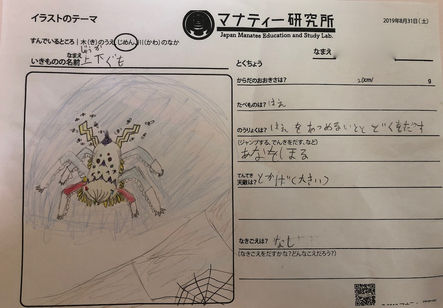 イラストのテーマ
マナティー研究所
Japan Manatee Education and Study Lab.
2019年8月31日(土)
なまえ
すんでいるところ 木(き)のうえ じめん 川(かわ)のなか
なまえ
いきものの名前
じょうげ
上下ぐも
とくちょう
からだのおおきさは?
20cm/ g
たべものは? はえ
のうりょくは? はえをあつめないとと どくをだす
(ジャンプする、でんきをだす、など)
あなをほる
てんてき
天敵は? とかげ(大きい)
なきごえは? なし
(なきごえをだすかな?どんなこえだろう?)